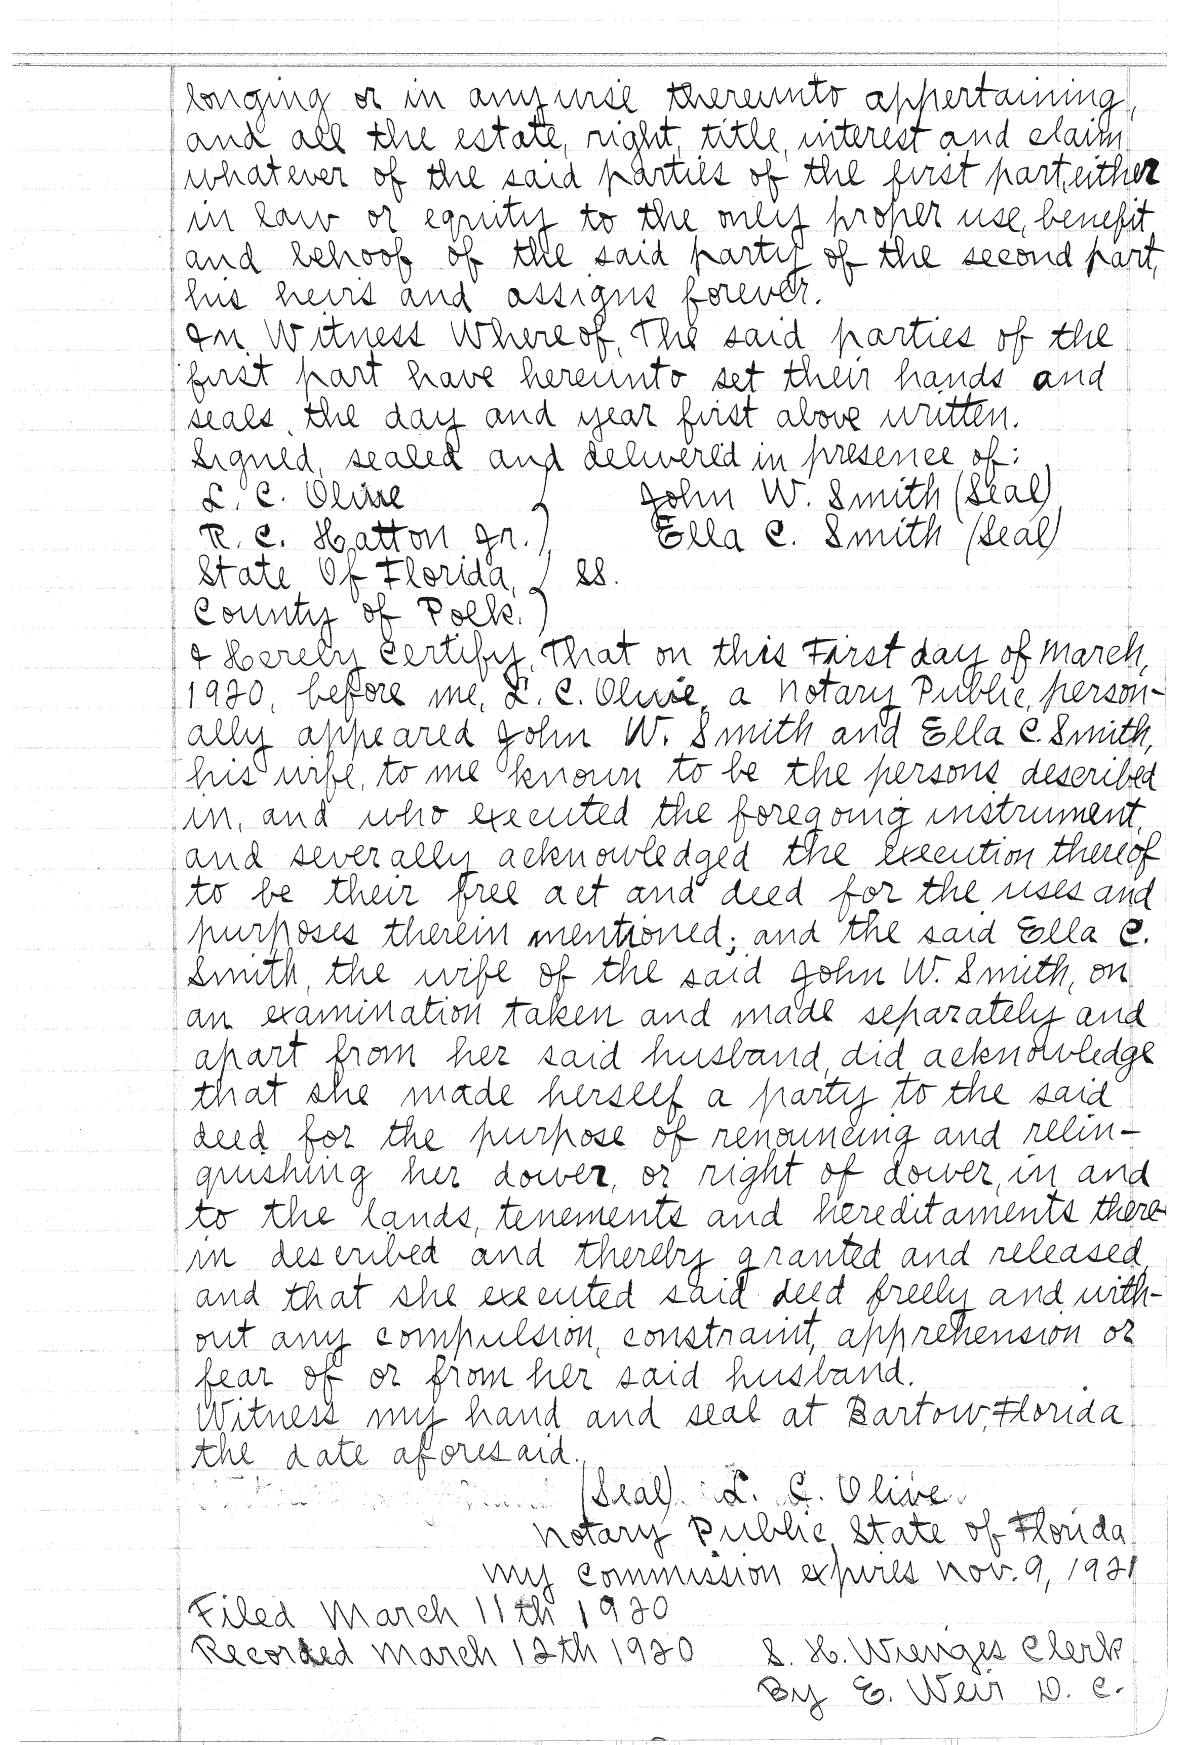 longing or in anywise thereunto appertaining,
and all the estate, right, title, interest and claim
whatever of the said parties of the first part, either
in law or equity to the only proper use, benefit
and behoof of the said party of the second part,
his heirs and assigns forever.
In Witness Whereof, The said parties of the
first part have hereunto set their hands and
seals, the day and year first above written.
Signed, sealed and delivered in presence of:
L. C. Olive ) John W. Smith (Seal)
R. C. Hatton Jr. ) Ella C. Smith (Seal)
State Of Florida, ) SS.
County of Polk. )
I Hereby Certify, That on this First day of March,
1920, before me, L. C. Olive, a Notary Public, person-
ally appeared John W. Smith and Ella C. Smith,
his wife, to me known to be the persons described
in, and who executed the foregoing instrument,
and severally acknowledged the execution thereof
to be their free act and deed for the uses and
purposes therein mentioned; and the said Ella C.
Smith, the wife of the said John W. Smith, on
an examination taken and made separately and
apart from her said husband, did acknowledge
that she made herself a party to the said
deed for the purpose of renouncing and relin-
quishing her dower, or right of dower, in and
to the lands, tenements and hereditaments there-
in described and thereby granted and released,
and that she executed said deed freely and with-
out any compulsion, constraint, apprehension or
fear of or from her said husband.
Witness my hand and seal at Bartow, Florida
the date aforesaid.
(Seal) L. C. Olive.
Notary Public, State of Florida
My commission expires Nov. 9, 1921
Filed March 11th 1920
Recorded March 12th 1920 S. H. Wienges Clerk
By E. Weir D. C.